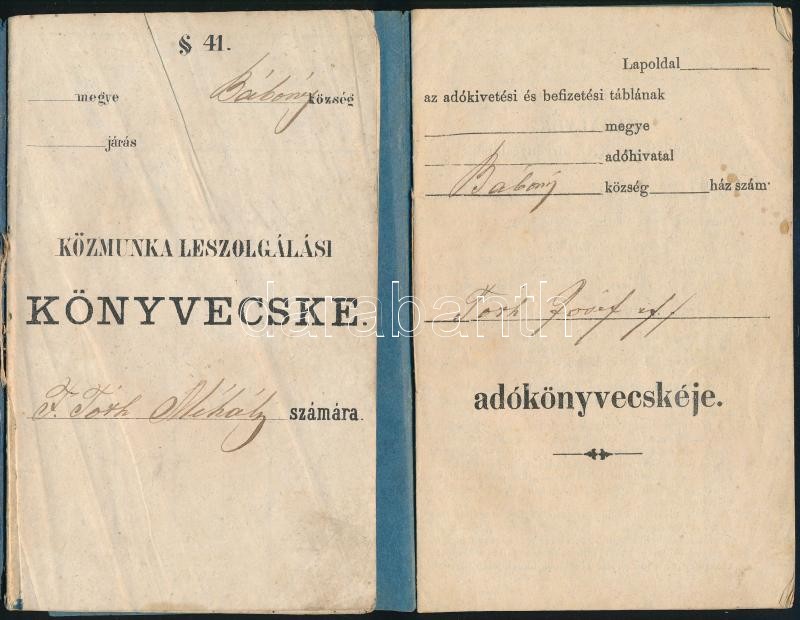 § 41.
megye Bábony község
járás
KÖZMUNKA LESZOLGÁLÁSI
KÖNYVECSKE.
F. Tóth Mihály számára.
Lapoldal
az adókivetési és befizetési táblának
megye
adóhivatal
Bábony község ház szám
Toth Josef
adókönyvecskéje.
darabanth